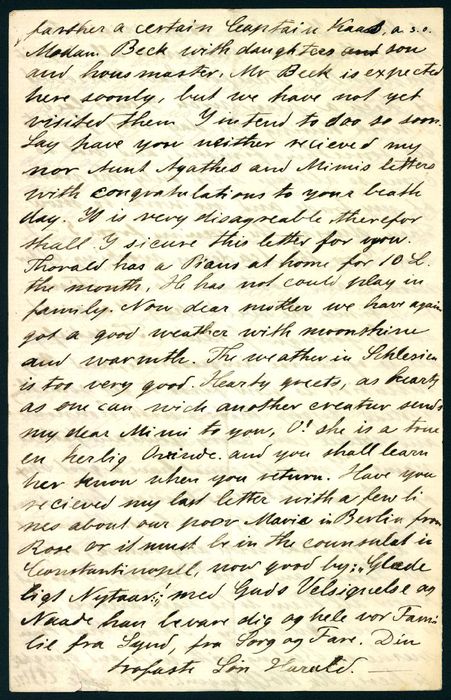 farther a certain Captain Kaas, a. s. o.
Madam Beck with daughters and son
and housmaster. Mr Beck is expected
here soonly, but we have not yet
visited them I intend to doo so soon.
Say have you neither recieved my
nor Aunt Agathes and Mimis letters
with congratulations to your beath
day. It is very disagreable therefor
shall I sicure this letter for you.
Thorald has a Piano at home for 10 L.
the month, He has not could play in
family. Now dear mother we have again
got a good weather with moonshine
and warmth. The weather in Schlesien
is too very good. Hearty greets, as hearty
as one can wich another creatur sends
my dear Mimi to you, O! she is a true
en herlig Qvinde. and you shall learn
her know when you return. Have you
recieved my last letter with a few li
nes about our poor Maria in Berlin from
Rose or it must be in the counsulat in
Constantinopell, now good by: „Glæde
ligt Nytaar“! med Guds Velsignelse og
Naade han bevare dig og hele vor Fami
lie fra Synd, fra Sorg og Fare. Din
trofaste Søn Harald. —